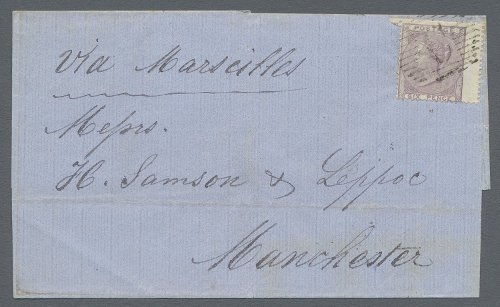 Via Marseilles
Messrs.
H. Samson & Leppoc
Manchester
POSTAGE
SIX PENCE